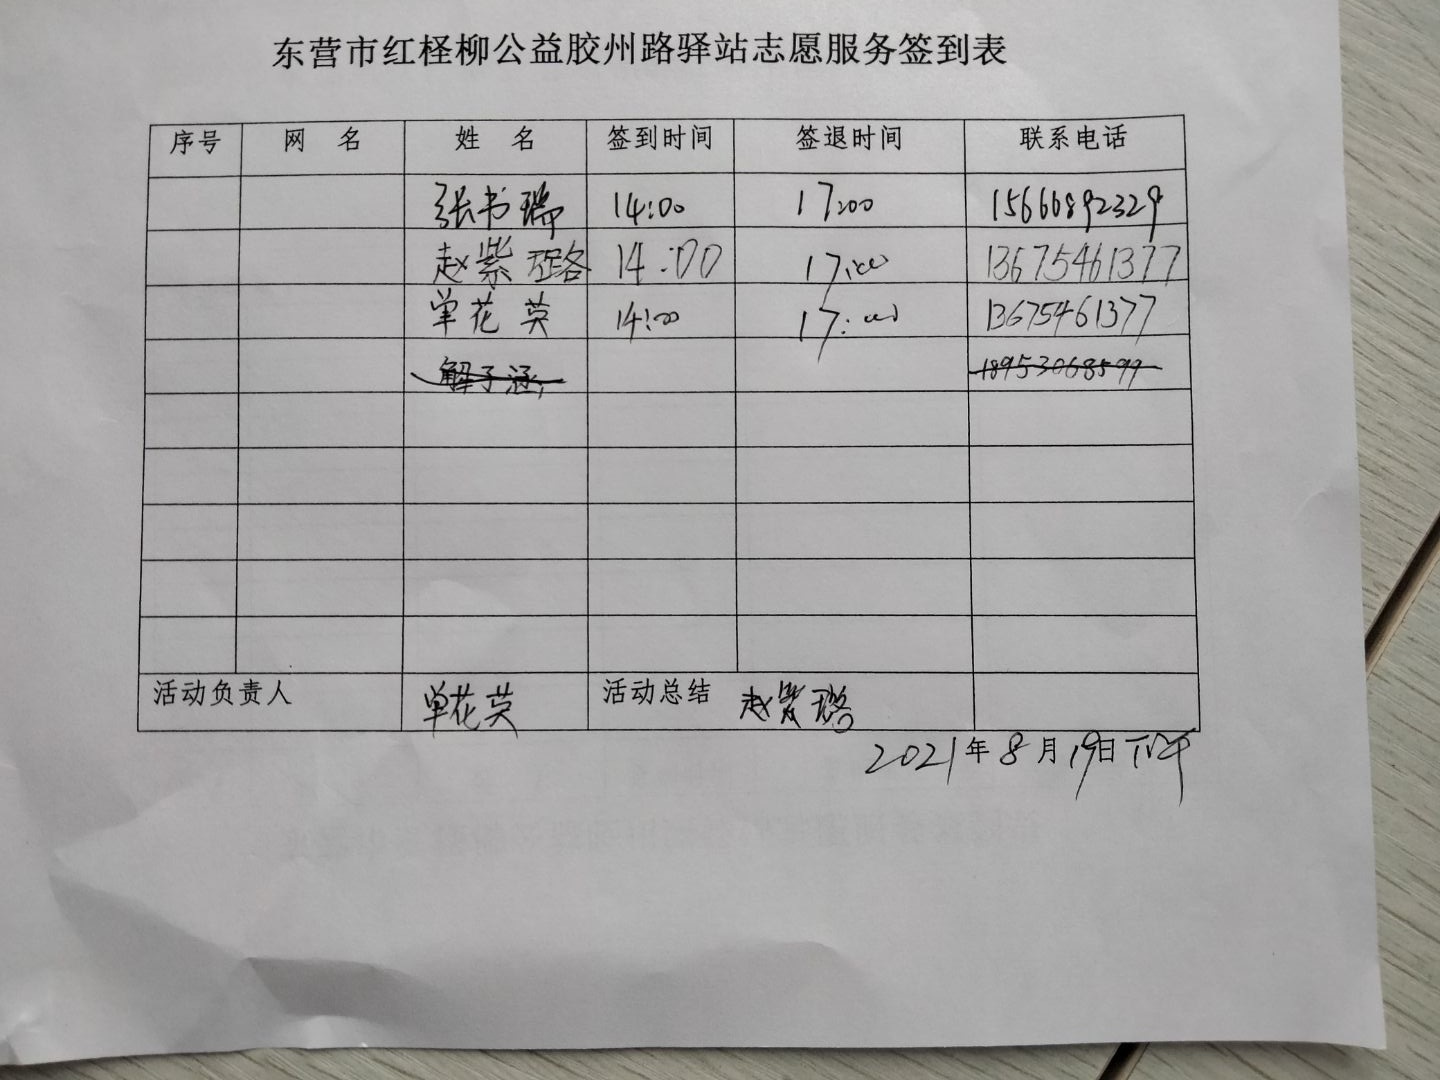 东营市红柽柳公益胶州路驿站志愿服务签到表
序号 网 名 姓 名 签到时间 签退时间 联系电话
张书瑞 14:00 17:00 15666892329
赵紫璐 14:00 17:00 13675461377
单花英 14:00 17:00 13675461377
解子涵 18953068599
活动负责人 单花英 活动总结 赵紫璐
2021年8月19日下午